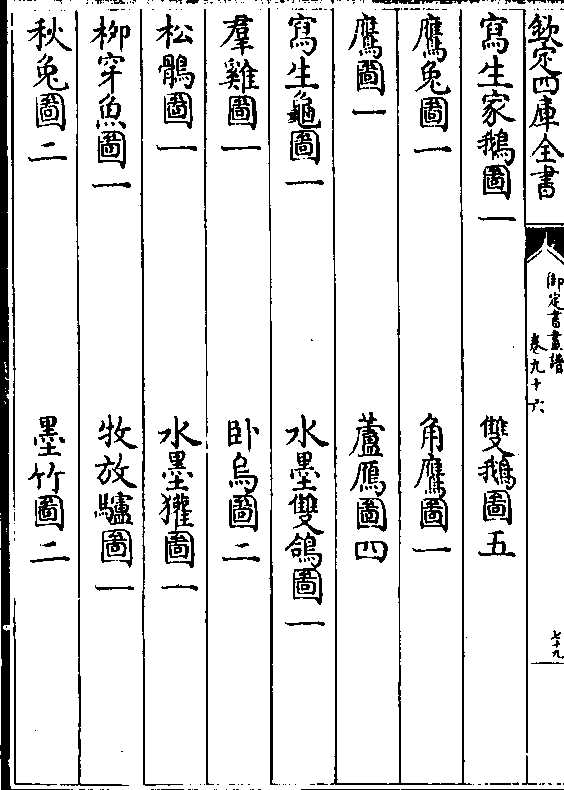 欽定四庫全書
御定書畫譜
卷九十六
七十九
寫生家鵝圖一 雙鵝圖五
鷹兔圖一 角鷹圖一
鷹圖一 蘆鴈圖四
寫生龜圖一 水墨雙鴿圖一
羣雞圖一 卧烏圖二
松鶻圖一 水墨獾圖一
柳穿魚圖一 牧放驢圖一
秋兔圖二 墨竹圖二